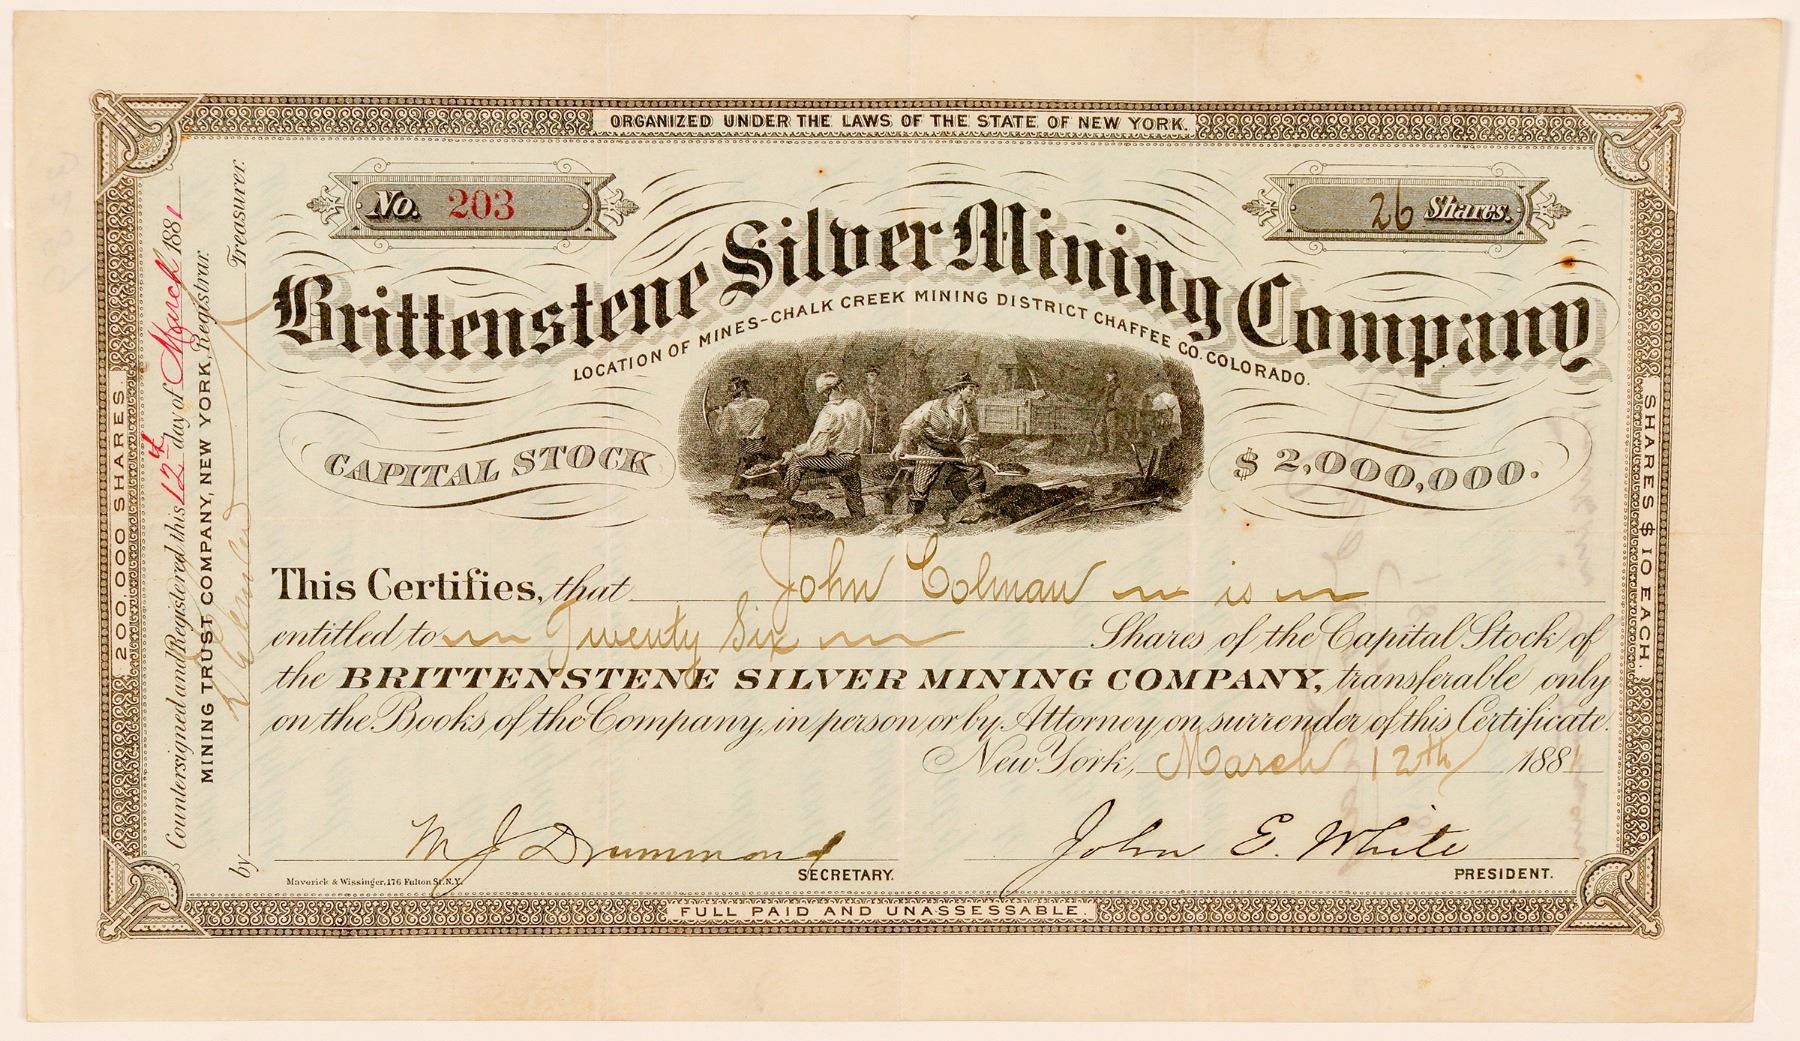 ORGANIZED UNDER THE LAWS OF THE STATE OF NEW YORK.
No. 203
26 Shares.
Brittenstene Silver Mining Company
LOCATION OF MINES-CHALK CREEK MINING DISTRICT CHAFFEE CO. COLORADO.
CAPITAL STOCK
$2,000,000.
This Certifies, that John Colman is
entitled to Twenty Six Shares of the Capital Stock of
the BRITTENSTENE SILVER MINING COMPANY, transferable only
on the Books of the Company, in person or by Attorney on surrender of this Certificate.
New York, March 12th 1881
M J Drummond
SECRETARY.
John E. White
PRESIDENT.
Maverick & Wissinger, 176 Fulton St. N.Y.
FULL PAID AND UNASSESSABLE.
200,000 SHARES.
Countersigned and Registered this 12th day of March 1881
MINING TRUST COMPANY, NEW YORK, Registrar.
by Treasurer.
SHARES $10 EACH.